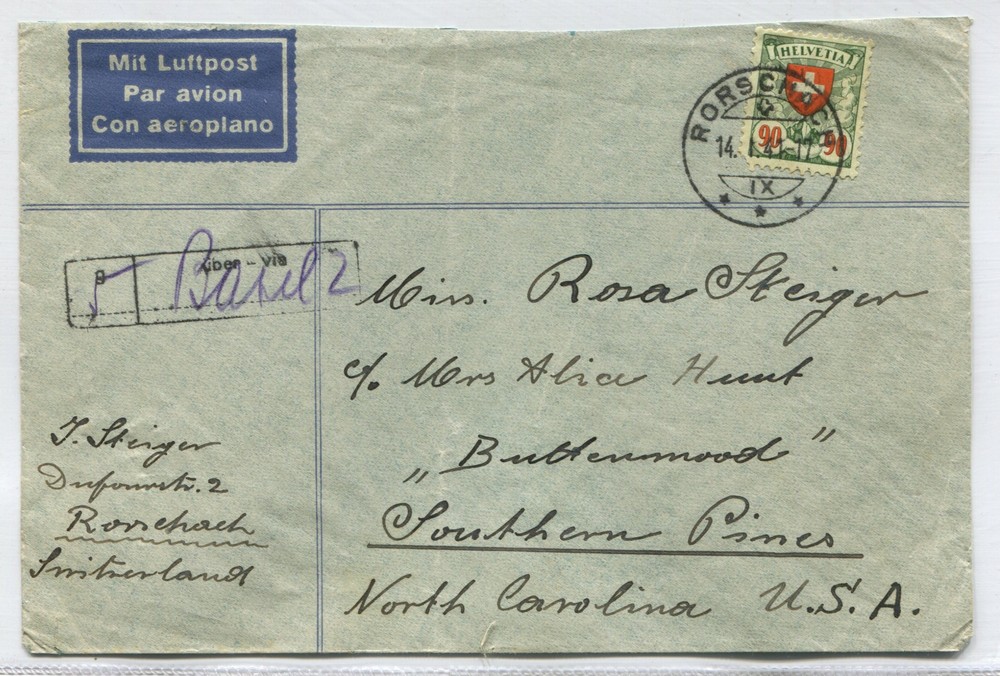 Mit Luftpost
Par avion
Con aeroplano
HELVETIA
90 90
RORSCHACH
14. I. 41-17
IX
g über - via
5 Basel 2
Miss. Rosa Steiger
c/o Mrs Alice Hunt
„Buttenwood"
Southern Pines
North Carolina U.S.A.
J. Steiger
Dufourstr. 2
Rorschach
Switzerland